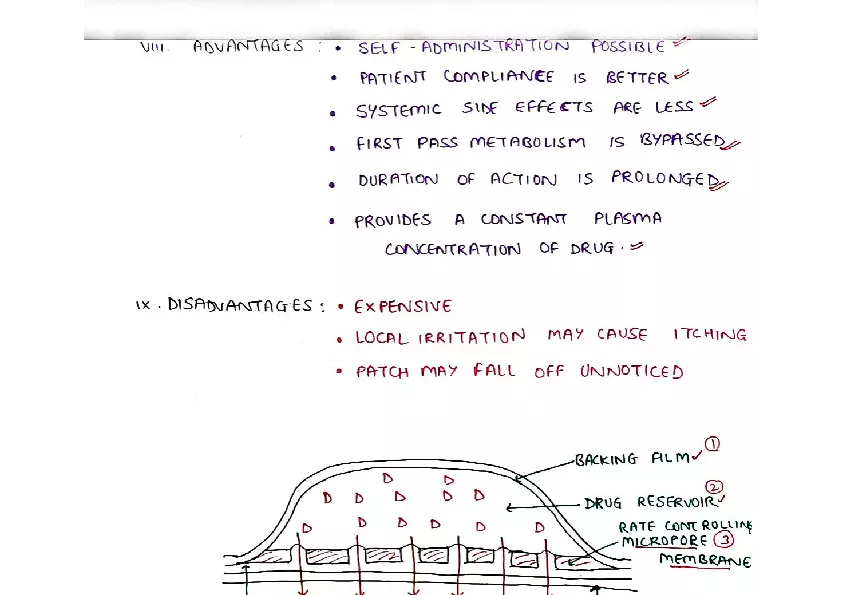 VIII. ADVANTAGES : • SELF - ADMINISTRATION POSSIBLE
• PATIENT COMPLIANCE IS BETTER
• SYSTEMIC SIDE EFFECTS ARE LESS
• FIRST PASS METABOLISM IS BYPASSED
• DURATION OF ACTION IS PROLONGED
• PROVIDES A CONSTANT PLASMA
CONCENTRATION OF DRUG.
IX. DISADVANTAGES : • EXPENSIVE
• LOCAL IRRITATION MAY CAUSE ITCHING
• PATCH MAY FALL OFF UNNOTICED
BACKING FILM 1
D D
D D D D D
DRUG RESERVOIR 2
D D D D D D
RATE CONTROLLING
MICROPORE 3
MEMBRANE